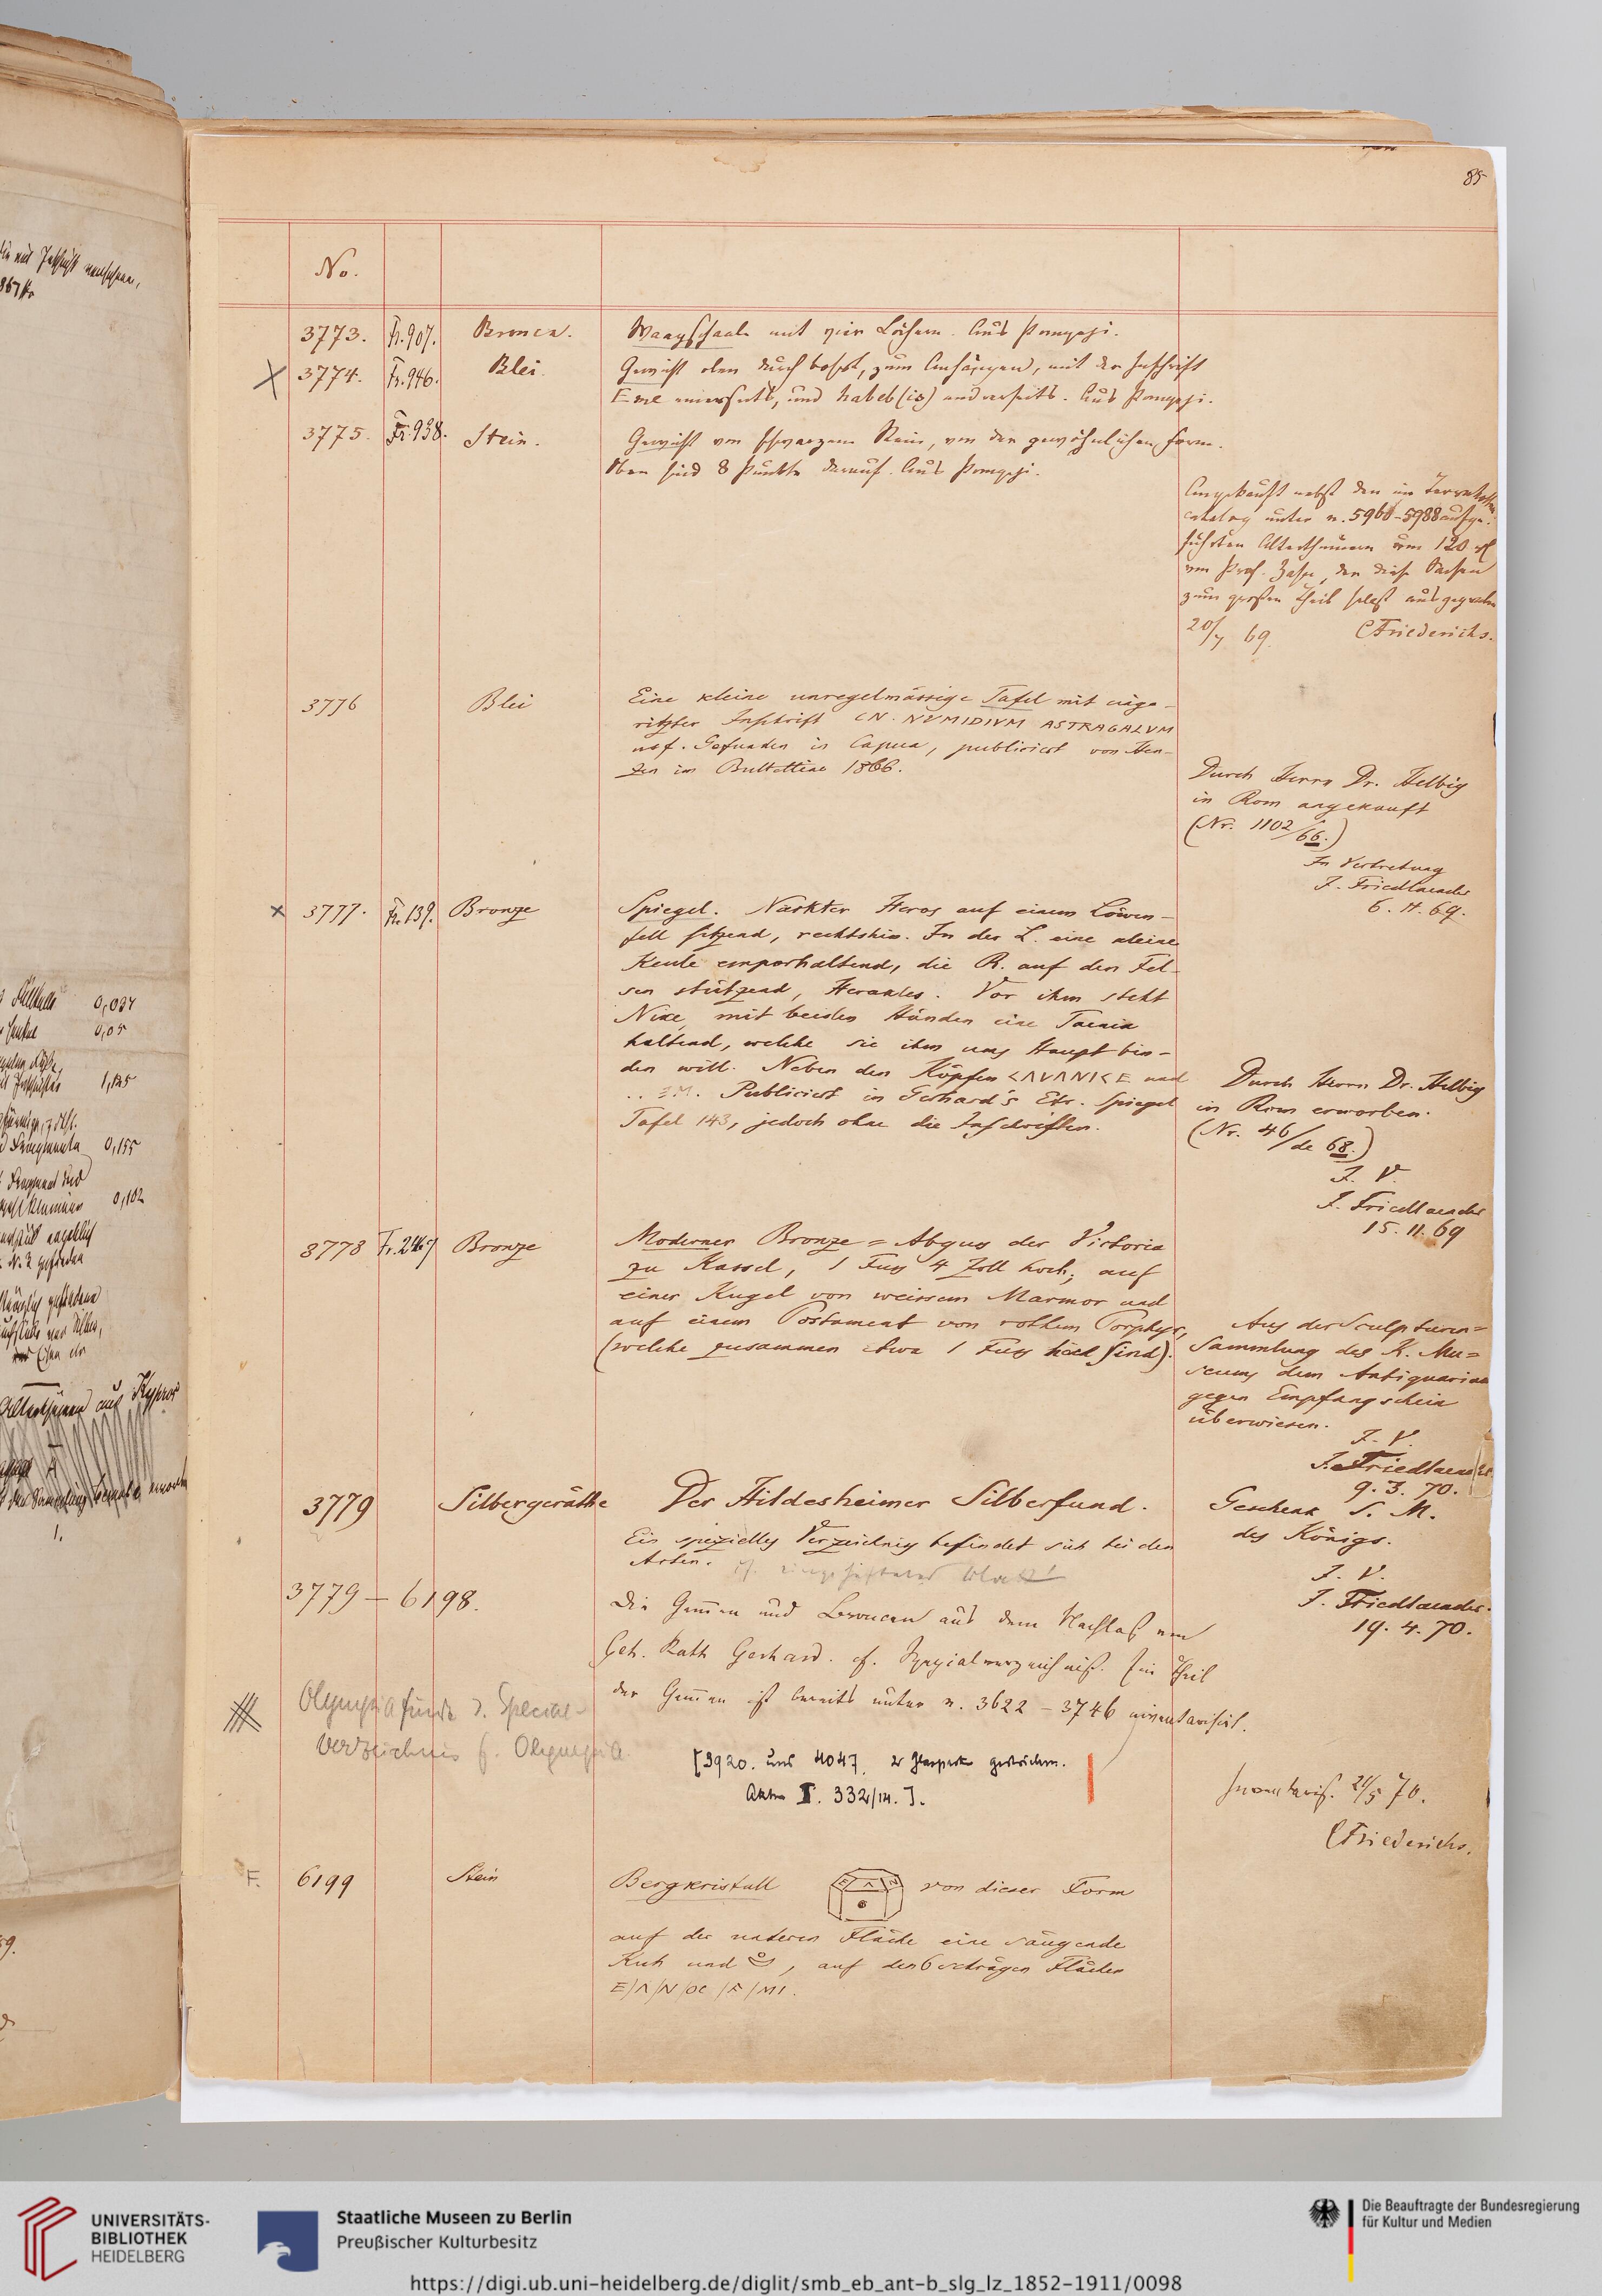 85
No.
3773. Fr. 907. Bronce. Waagschaale mit vier Löchern. Aus Pompeji.
3774. Fr. 946. Blei. Gewicht oben durchbohrt, zum Anhängen, mit der Inschrift
Eme einerseits, und habeb(is) anderseits. Aus Pompeji.
3775. Fr. 938. Stein. Gewicht von schwarzem Stein, von der gewöhnlichen Form.
Oben sind 8 Punkte darauf. Aus Pompeji.
Angekauft nebst den im Terrakotten
catalog unter n. 5960-5988 aufge-
führten Alterthümern um 120
von Prof. Zahn, der diese Sachen
zum großen Theil selbst ausgegraben
20/7 69. CFriederichs.
3776 Blei Eine kleine unregelmässige Tafel mit einge-
ritzter Inschrift CN. NVMIDIVM ASTRAGALVM
usf. Gefunden in Capua, publicirt von Hen-
zen im Bullettino 1866.
Durch Herrn Dr. Helbig
in Rom angekauft
(Nr. 1102/66.)
In Vertretung
J. Friedlaender
6. 11. 69.
3777. Fr. 139. Bronze Spiegel. Nackter Heros auf einem Löwen-
fell sitzend, rechtshin. In der L. eine kleine
Keule emporhaltend, die R. auf den Fel-
sen stützend, Herakles. Vor ihm steht
Nike, mit beiden Händen eine Taenia
haltend, welche sie ihm ums Haupt bin-
den will. Neben den Köpfen und
Publicirt in Gerhard's Etr. Spiegel
Tafel 143, jedoch ohne die Inschriften.
Durch Herrn Dr. Helbig
in Rom erworben.
(Nr. 46/de 68.)
J. V.
J. Friedlaender
15. 11. 69
3778 Fr. 2467 Bronze Moderner Bronze = Abguss der Victoria
zu Kassel, 1 Fuss 4 Zoll hoch, auf
einer Kugel von weissem Marmor und
auf einem Postament von rothem Porphyr,
(welche zusammen etwa 1 Fuss hoch sind).
Aus der Sculpturen=
Sammlung des K. Mu=
seums dem Antiquarium
gegen Empfangschein
überwiesen.
J. V.
J. Friedlaender
9. 3. 70.
3779 Silbergeräthe Der Hildesheimer Silberfund.
Ein spezielles Verzeichniss befindet sich bei den
Akten. cf. eingeheftetes Blatt!
Geschenk S. M.
des Königs.
J. V.
J. Friedlaender.
19. 4. 70.
3779 – 6198. Die Gemmen und Broncen aus dem Nachlaß von
Geh. Rath Gerhard. cf. Spezialverzeichniß. Ein Theil
der Gemmen ist bereits unter n. 3622 – 3746 inventarisirt.
Olympiafunde s. Special-
Verzeichnis f. Olympia.
[3920. und 4047. 2 Glaspasten gestrichen.
Akten II. 332/14.].
Inventaris. 21/5 70.
CFriederichs.
F. 6199 Stein Bergkristall von dieser Form
auf der unteren Fläche eine säugende
Kuh und , auf den 6 schrägen Flächen
E/Λ/N/OC/F/MI.
0,034
0,05
1,125
0,155
0,102
Alterthümer aus Kypros
UNIVERSITÄTS-
BIBLIOTHEK
HEIDELBERG
Staatliche Museen zu Berlin
Preußischer Kulturbesitz
Die Beauftragte der Bundesregierung
für Kultur und Medien
https://digi.ub.uni-heidelberg.de/diglit/smb_eb_ant-b_slg_lz_1852-1911/0098